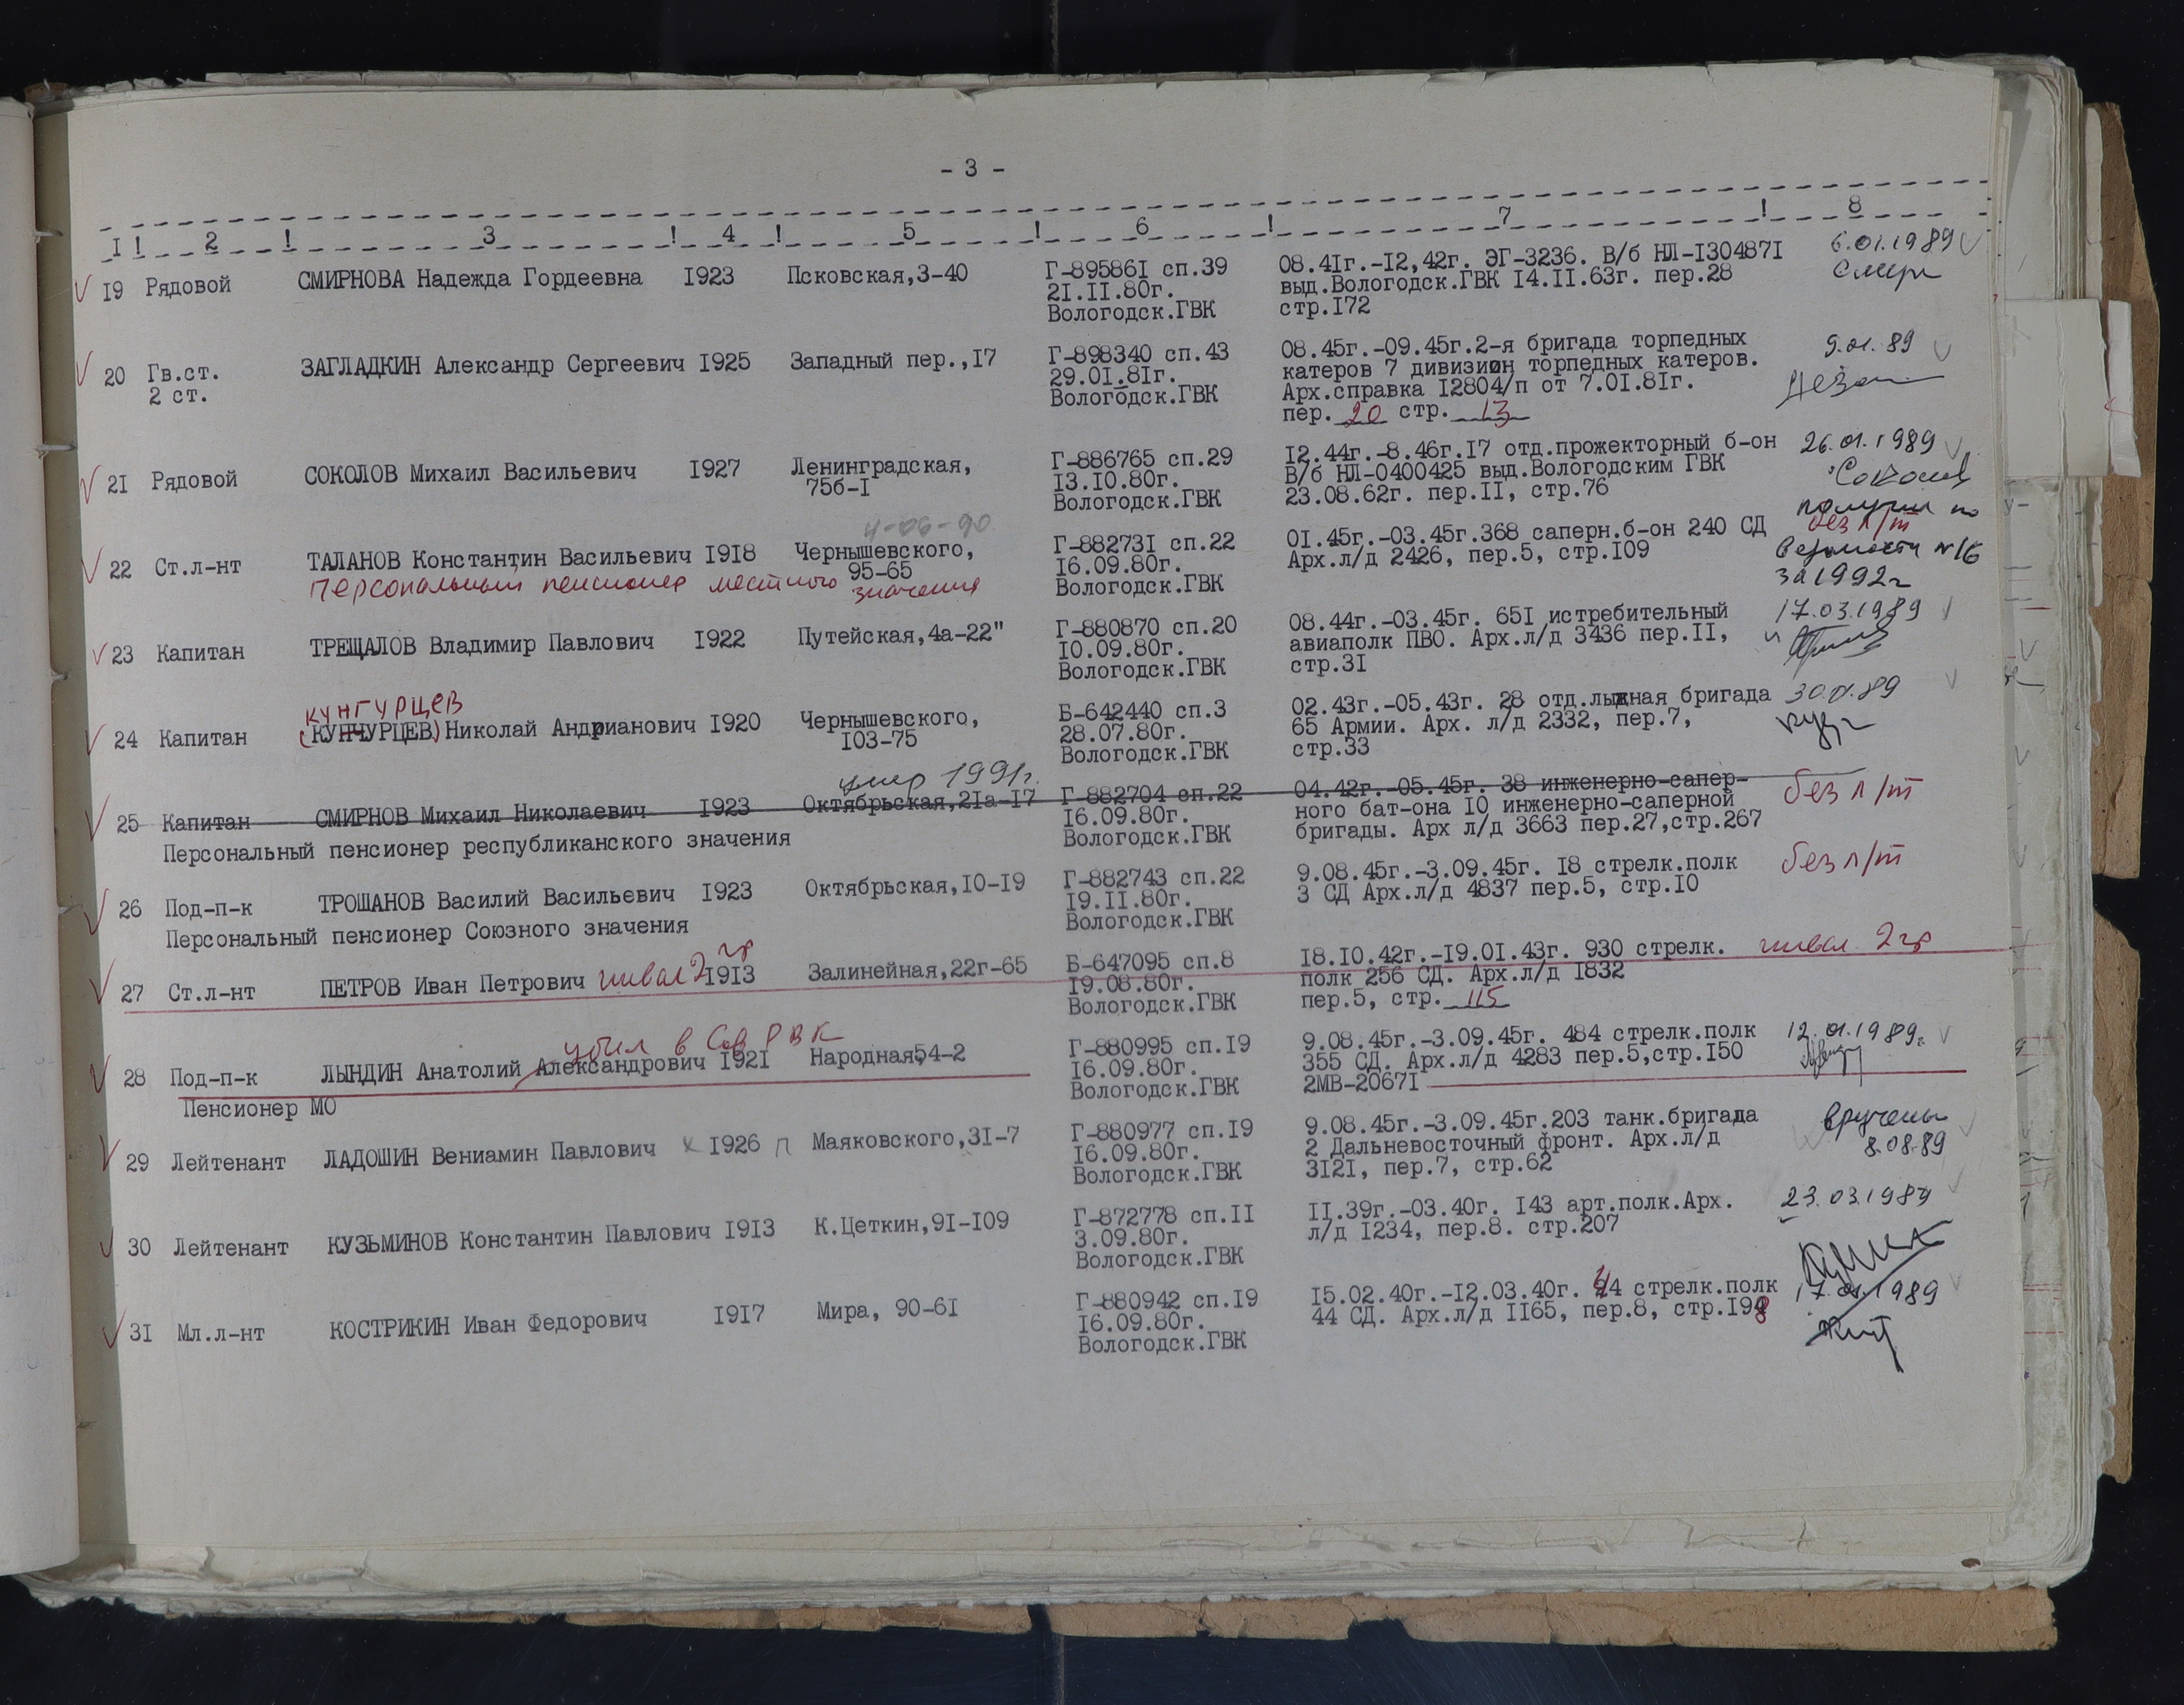 - 3 -
I ! 2 ! 3 ! 4 ! 5 ! 6 ! 7 ! 8
19 Рядовой СМИРНОВА Надежда Гордеевна 1923 Псковская,3-40 Г-895861 сп.39 08.41г.-12,42г. ЭГ-3236. В/б НЛ-1304871 6.01.1989
21.11.80г. выд.Вологодск.ГВК 14.11.63г. пер.28 Смирн
Вологодск.ГВК стр.172
20 Гв.ст. ЗАГЛАДКИН Александр Сергеевич 1925 Западный пер.,17 Г-898340 сп.43 08.45г.-09.45г.2-я бригада торпедных 9.01.89
2 ст. 29.01.81г. катеров 7 дивизион торпедных катеров.
Вологодск.ГВК Арх.справка 12804/п от 7.01.81г.
пер. 20 стр. 13
21 Рядовой СОКОЛОВ Михаил Васильевич 1927 Ленинградская, Г-886765 сп.29 12.44г.-8.46г.17 отд.прожекторный б-он 26.01.1989
75б-1 13.10.80г. В/б НЛ-0400425 выд.Вологодским ГВК Соколов
Вологодск.ГВК 23.08.62г. пер.11, стр.76
4-06-90 получил по
22 Ст.л-нт ТАЛАНОВ Константин Васильевич 1918 Чернышевского, Г-882731 сп.22 01.45г.-03.45г.368 саперн.б-он 240 СД без п/т
95-65 16.09.80г. Арх.л/д 2426, пер.5, стр.109 ведомости №16
Персональный пенсионер местного значения Вологодск.ГВК за 1992г
23 Капитан ТРЕЩАЛОВ Владимир Павлович 1922 Путейская,4а-22" Г-880870 сп.20 08.44г.-03.45г. 651 истребительный 17.03.1989
10.09.80г. авиаполк ПВО. Арх.л/д 3436 пер.11,
Вологодск.ГВК стр.31
КУНГУРЦЕВ
24 Капитан (КУНЧУРЦЕВ) Николай Андрианович 1920 Чернышевского, Б-642440 сп.3 02.43г.-05.43г. 28 отд.лыжная бригада
103-75 28.07.80г. 65 Армии. Арх. л/д 2332, пер.7,
Вологодск.ГВК стр.33
умер 1991г.
25 Капитан СМИРНОВ Михаил Николаевич 1923 Октябрьская,21а-17 Г-882704 сп.22 04.42г.-05.45г. 38 инженерно-сапер- без п/т
16.09.80г. ного бат-она 10 инженерно-саперной
Персональный пенсионер республиканского значения Вологодск.ГВК бригады. Арх л/д 3663 пер.27,стр.267
26 Под-п-к ТРОШАНОВ Василий Васильевич 1923 Октябрьская,10-19 Г-882743 сп.22 9.08.45г.-3.09.45г. 18 стрелк.полк без п/т
19.11.80г. 3 СД Арх.л/д 4837 пер.5, стр.10
Персональный пенсионер Союзного значения Вологодск.ГВК
27 Ст.л-нт ПЕТРОВ Иван Петрович инвал 2 гр 1913 Залинейная,22г-65 Б-647095 сп.8 18.10.42г.-19.01.43г. 930 стрелк. инвал. 2 гр
19.08.80г. полк 256 СД. Арх.л/д 1832
Вологодск.ГВК пер.5, стр. 115
убыл в Сов РВК
28 Под-п-к ЛЫНДИН Анатолий Александрович 1921 Народная,54-2 Г-880995 сп.19 9.08.45г.-3.09.45г. 484 стрелк.полк 12.01.1989г.
16.09.80г. 355 СД. Арх.л/д 4283 пер.5,стр.150
Пенсионер МО Вологодск.ГВК 2МВ-20671
29 Лейтенант ЛАДОШИН Вениамин Павлович 1926 п Маяковского,31-7 Г-880977 сп.19 9.08.45г.-3.09.45г.203 танк.бригада вручены
16.09.80г. 2 Дальневосточный фронт. Арх.л/д 8.08.89
Вологодск.ГВК 3121, пер.7, стр.62
30 Лейтенант КУЗЬМИНОВ Константин Павлович 1913 К.Цеткин,91-109 Г-872778 сп.11 11.39г.-03.40г. 143 арт.полк.Арх. 23.03.1989
3.09.80г. л/д 1234, пер.8. стр.207
Вологодск.ГВК
31 Мл.л-нт КОСТРИКИН Иван Федорович 1917 Мира, 90-61 Г-880942 сп.19 15.02.40г.-12.03.40г. 44 стрелк.полк
16.09.80г. 44 СД. Арх.л/д 1165, пер.8, стр.198
Вологодск.ГВК